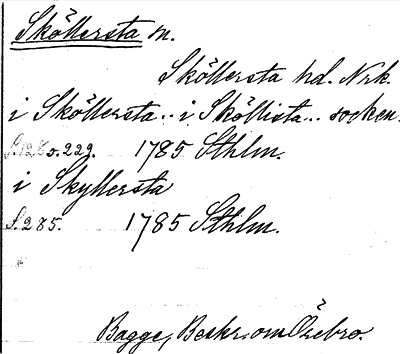 Sköllersta sn.
Sköllersta hd. Nrk.
i Sköllersta.. i Sköllista.. socken.
S. 228 o. 229. 1785 Sthlm.
i Skyllersta
S. 285. 1785 Sthlm.
Bagge, Beskr. om Örebro.